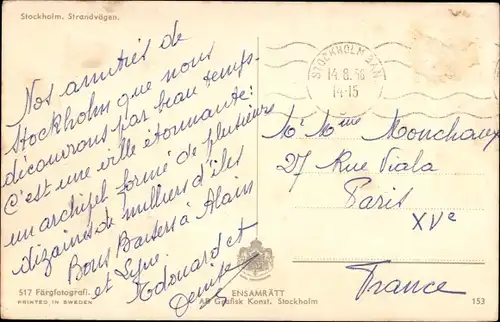 Stockholm. Strandvägen.
Nos amitiés de
Stockholm que nous
découvrons par beau temps.
C'est une ville étonnante:
un archipel formé de plusieurs
dizaines de milliers d'îles
Bons Baisers à Alain
et Lyne.
Edouard et
Denise
STOCKHOLM BAN
14-15
Mr Mme Monchaux
27 Rue Viala
Paris
XVe
France
517 Färgfotografi.
PRINTED IN SWEDEN
ENSAMRÄTT
AB Grafisk Konst. Stockholm
153